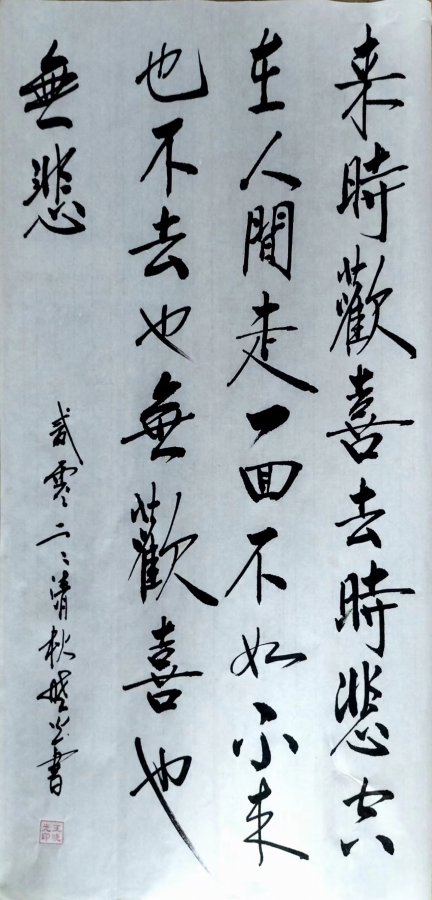 来時歡喜去時悲空
在人間走一回不如不来
也不去也無歡喜也
無悲
貳零二二清秋楚光書